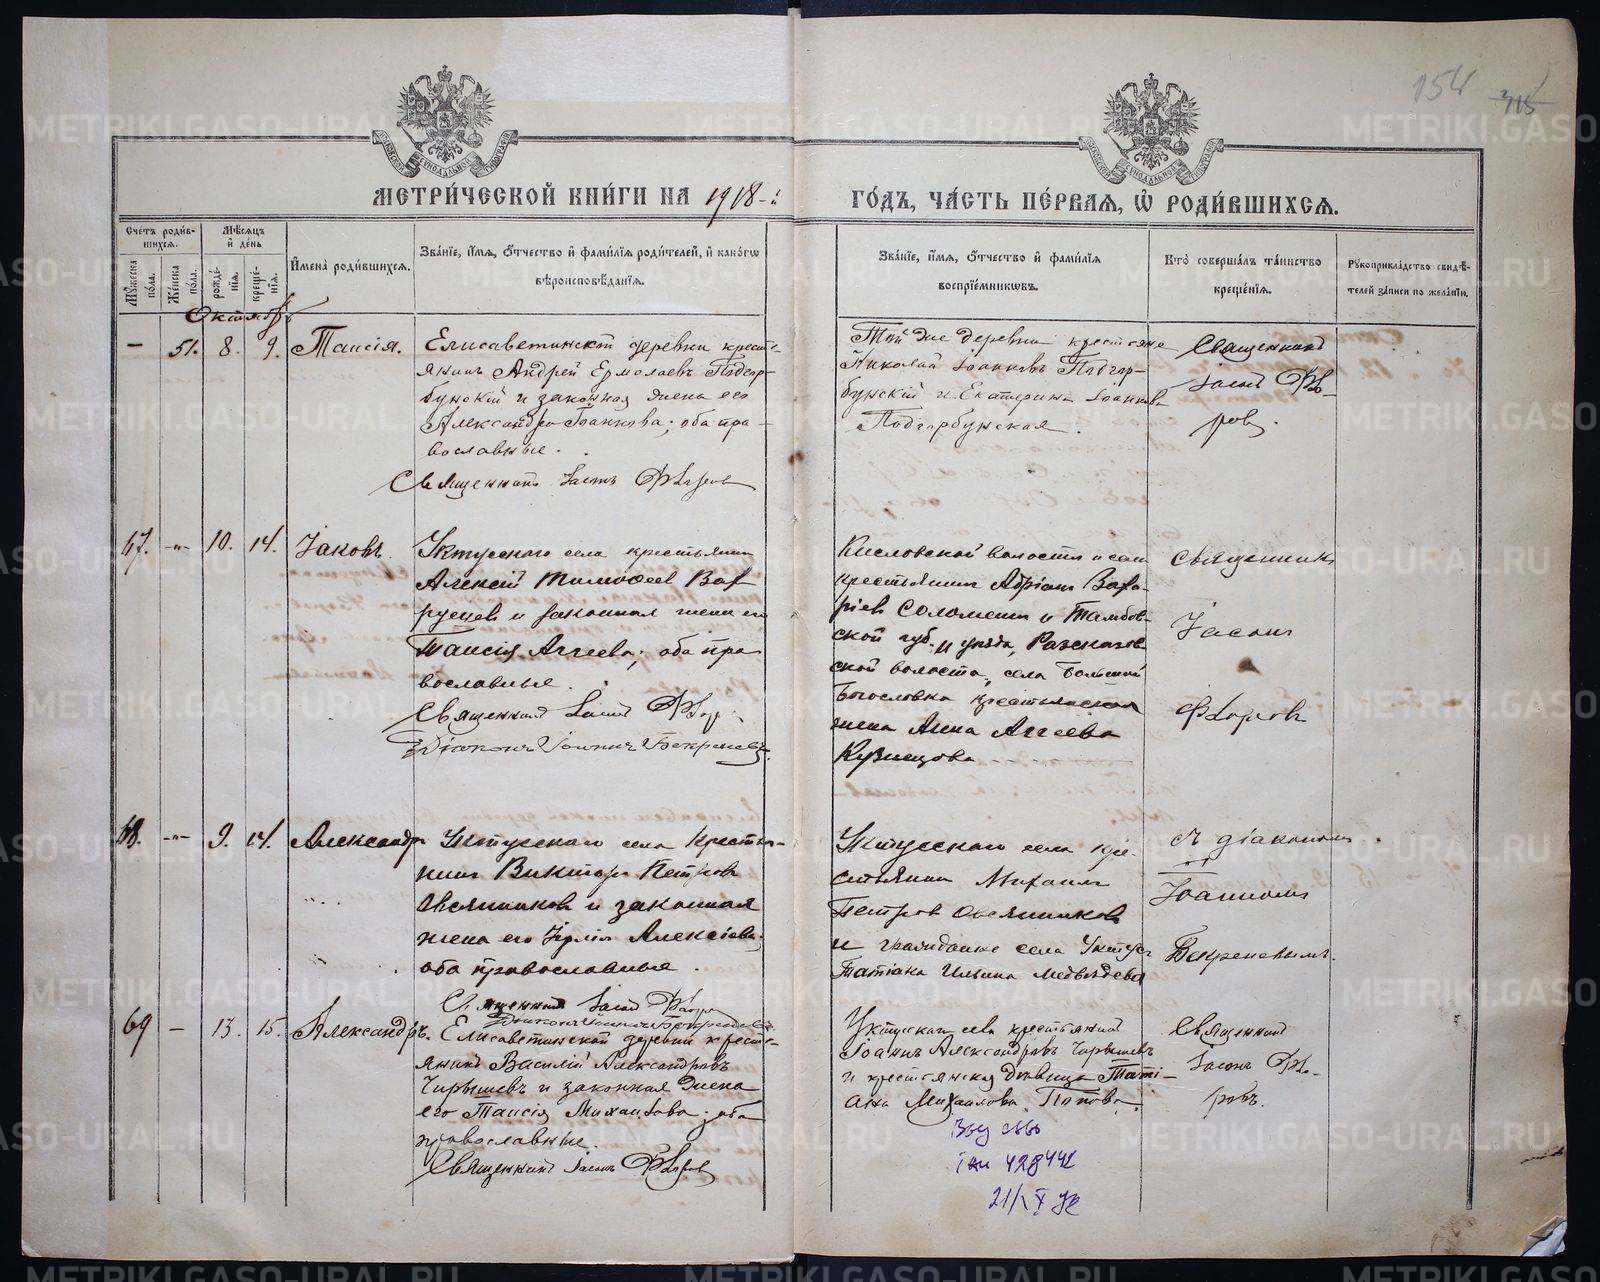 154 315
МЕТРИ́ЧЕСКОЙ КНИ́ГИ НА 1918-й ГО́ДЪ, ЧА́СТЬ ПЕ́РВАЯ, Ѡ РОДИ́ВШИХСЯ.
Сче́тъ роди́вшихся.
Мѣ́сяцъ и де́нь
Му́жеска по́ла.
Же́нска по́ла.
рожде́нїя.
креще́нїя.
И҆мена̀ роди́вшихся.
Зва́нїе, и҆́мя, ѻ҆́тчество и҆ фами́лїя роди́телей, и҆ како́гѡ
вѣроисповѣ́данїя.
Зва́нїе, и҆́мя, ѻ҆́тчество и҆ фами́лїя
воспрїе́мникѡвъ.
Кто̀ соверша́лъ та́инство
креще́нїя.
Рꙋкоприкла́дство свидѣ́телей за́писи по жела́нїю.
Октябрь
— 51. 8. 9. Таисія.
Елисаветинской деревни кресть-
янинъ Андрей Ермолаевъ Подгор-
бунскій и законная жена его
Александра Іоаннова; оба пра-
вославные.
Священникъ Іасонъ Флоровъ
Той же деревни крестьяне
Николай Іоанновъ Подгор-
бунскій и Екатерина Іоаннова
Подгорбунская.
Священникъ
Іасонъ Фло-
ровъ.
67. -"- 10. 14. Іаковъ.
Уктусскаго села крестьянинъ
Алексій Тимофеев Вах
рушев и законная жена его
Таисія Аггеева; оба пра
вославные.
Священникъ Іасонъ Флоров
Діаконъ Іоаннъ Бекреневъ.
Кисловской волости и села
крестьянинъ Адріанъ Вала-
ріев Соломеин и Тамбов-
ской губ. и уезда, Рассказов
ской волости, села Большой
Богословка крестьянская
жена Анна Аггеева
Кузнецова
Священникъ
Іасонъ
Флоровъ
68. -"- 9. 14. Александръ
Уктусского села Крестья-
нин Викторъ Петровъ
Овсянников и законная
жена его Юлія Алексіева;
оба православные.
Священникъ Іасонъ Флоровъ
Діаконъ Іоаннъ Бекреневъ.
Уктусского села кре-
стьянин Михаилъ
Петров Овсянников
и гражданка села Уктус
Татіана Ильина Медвѣдева
съ діакономъ
Іоанномъ
Бекреневымъ.
69 — 13. 15. Александръ.
Елисаветинской деревни кресть-
янинъ Василій Александровъ
Чирышевъ и законная жена
его Таисія Михаилова; оба
православные.
Священникъ Іасонъ Флоров
Уктусскаго села крестьянинъ
Іоаннъ Александровъ Чирышевъ
и крестьянская дѣвица Тати-
ана Михаилова Попова.
Священникъ
Іасонъ Фло-
ровъ.
428442
METRIKI.GASO-URAL.RU